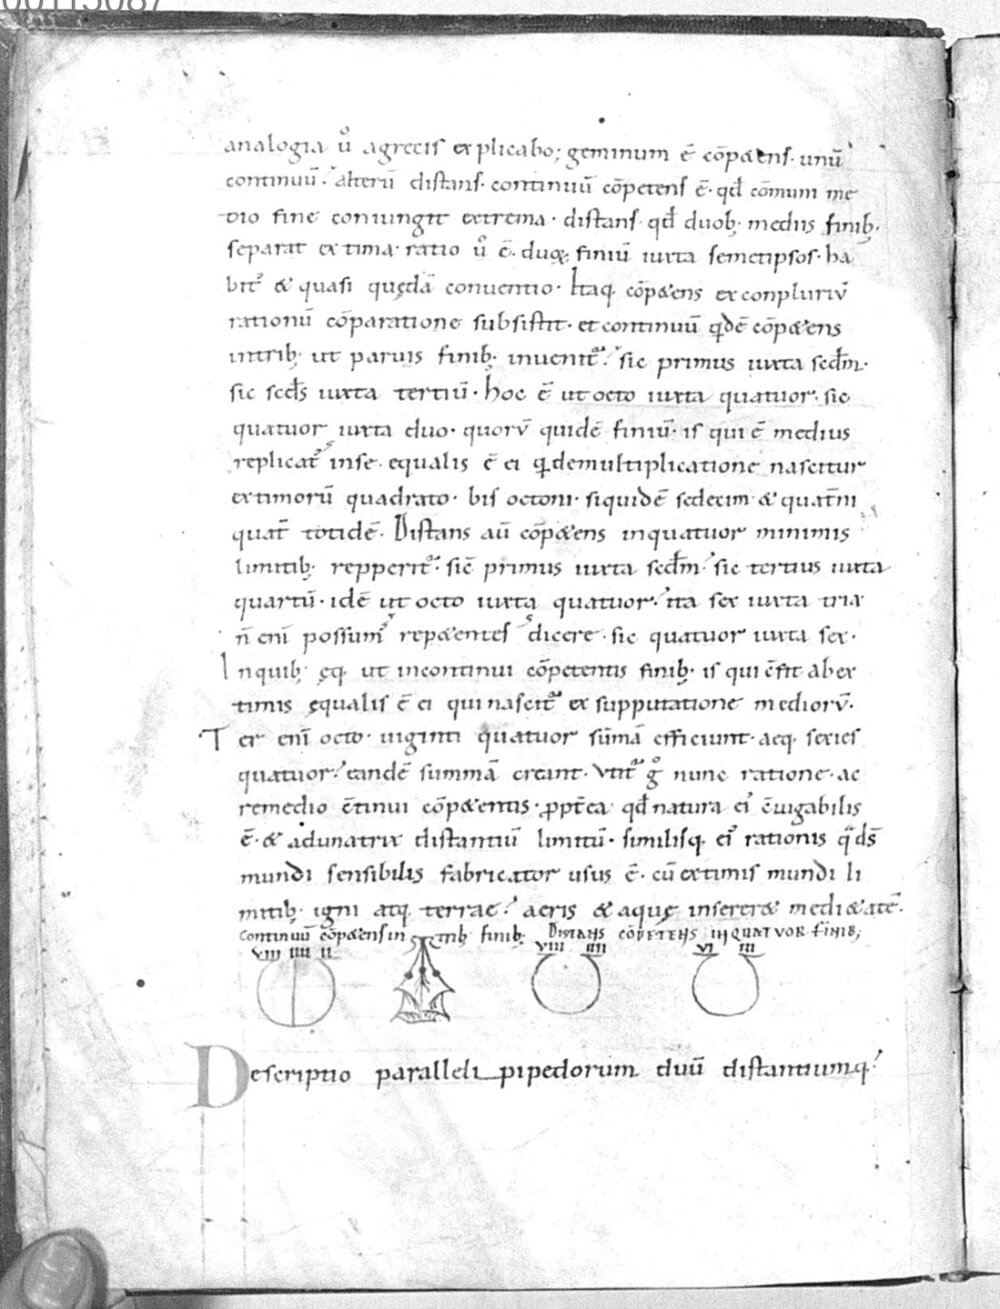 analogia ů agrecis explicabo; geminum ē cōpetens. unū
continuū. alterū distans. continuū cōpetens ē. qđ cōmuni me
dio fine coniungit extrema. distans. qđ duob; mediis finib;
separat extima. ratio ů ē. duoꝝ finiū iuxta semetipsos. ha
bit᷒ & quasi quędā conuentio. Itaq; cōp&ens exconpluriū
rationū cōparatione subsistit. et continuū qdē cōp&ens
intrib; ut paruis finib; inuenit᷒. sic primus iuxta secđm.
sic secđs iuxta tertiū. hoc ē ut octo iuxta quatuor. sic
quatuor iuxta duo. quorū quidē finiū. is qui ē medius
replicat᷒ inse. equalis ē ei q̄ demultiplicatione nascitur
extimorū quadrato. bis octoni. siquidē sedecim & quat̄ni
quat̄ totidē. Distans aū cōp&ens inquatuor minimis
limitib; repperit᷒. sic primus iuxta secđm. sic tertius iuxta
quartū. idē ut octo iuxta quatuor. ita sex iuxta tria
n̄ enī possum᷒ rep&entes dicere. sic quatuor iuxta sex.
Inquib; ęq; ut incontinui cōpetentis finib; is qui c̄fit abex
timis ęqualis ē ei qui nascit᷒ ex supputatione mediorū.
Ter enī octo. uiginti quatuor sūmā efficiunt. aeq; sexies
quatuor. eandē summā creant. Vtit᷒ g̊ nunc ratione. ac
remedio c̄tinui cōp&entis. ꝓpt̄ea qđ natura ei᷒ c̄iugabilis
ē. & adunatrix distantiū limitū. similisq; ei᷒ rationis q̄ dš
mundi sensibilis fabricator usus ē. cū extimis mundi li
mitib; igni atq; terrae. aeris & aquę inserer& medi&atē.
Continuū cōp&ens in trib; finib; Distans cōpetens in quatuor finib;
VIII IIII II VIII IIII VI III
Descriptio parallelipipedorum duū distantiumq;